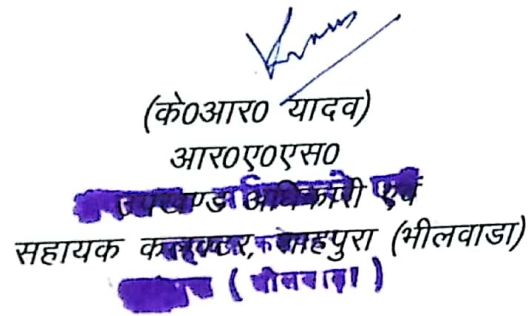 (के0आर0 यादव)
आर0ए0एस0
उपखण्ड अधिकारी एवं
सहायक कलक्टर, शाहपुरा (भीलवाडा)
(भीलवाड़ा)